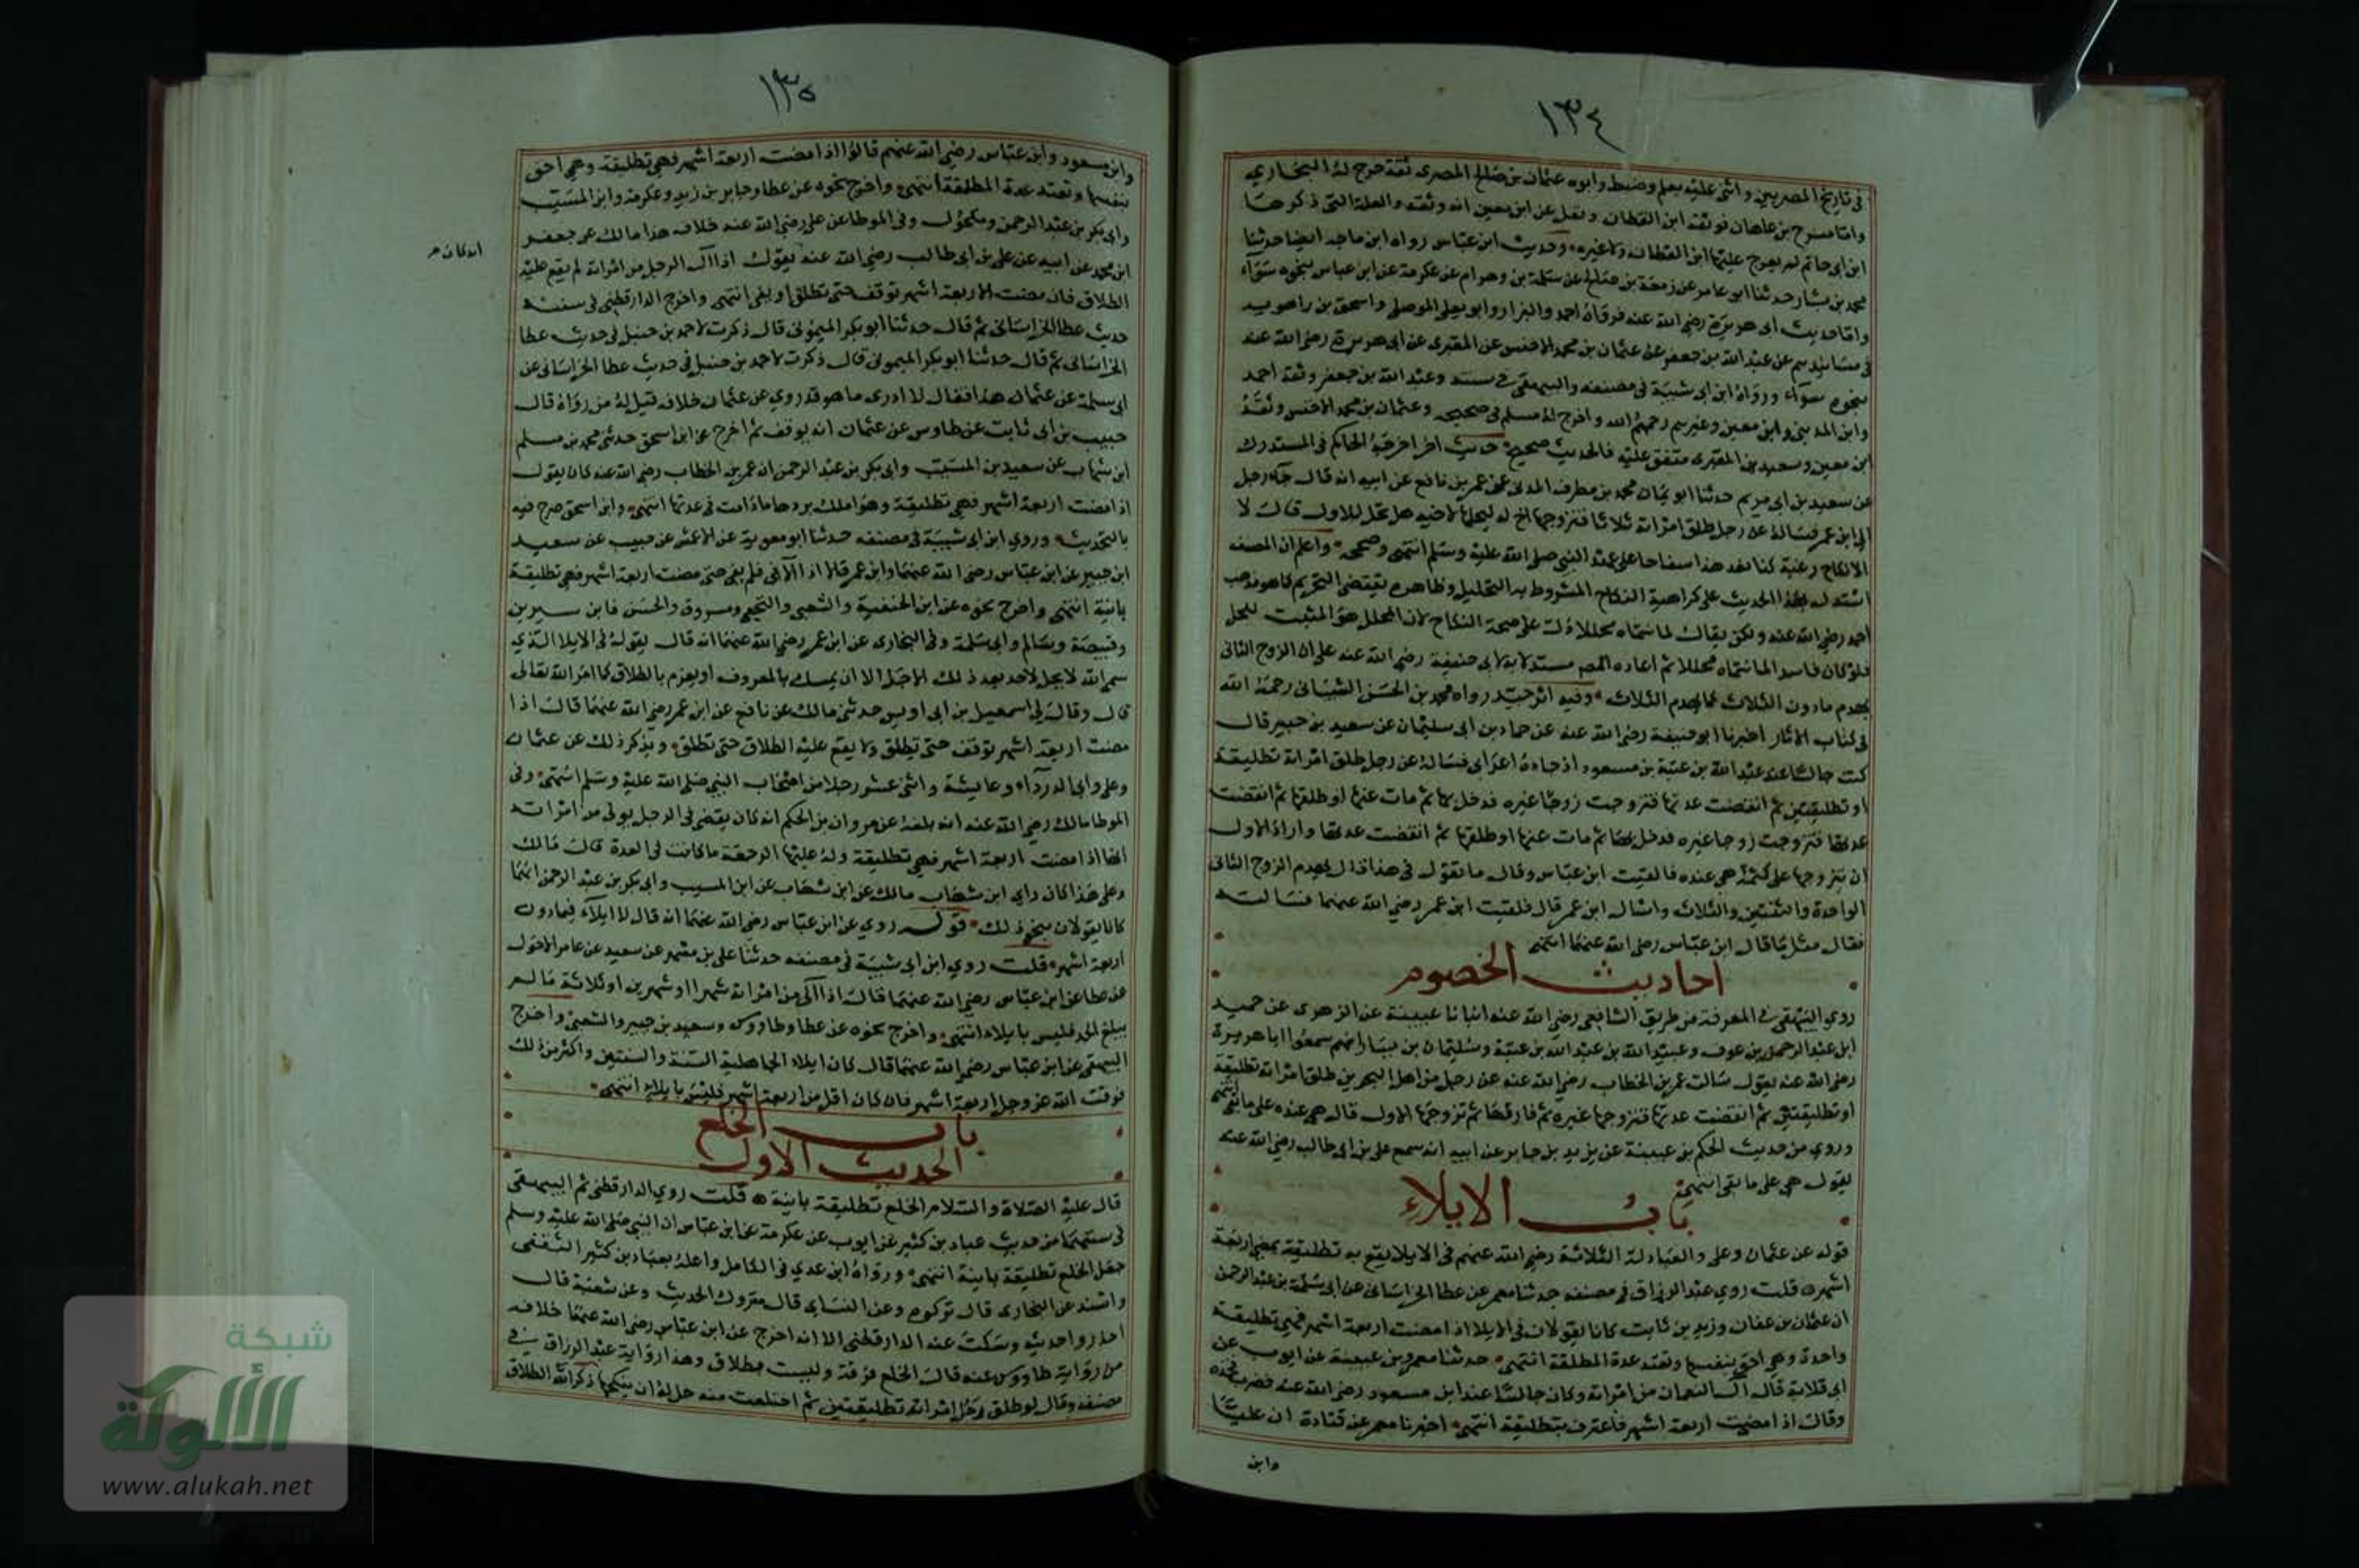 ١٣٤
في تاريخ المصريين واثنى عليه بعلم وضبط وابوه عثمان بن صالح المصري ثقة خرج له البخاري
وامّا مشرح بن عاهان فوثقه ابن القطان ونقل عن ابن معين انه وثقه والعلة التي ذكرها
ابن ابي حاتم لم يعرج عليها ابن القطان ولا غيره وحديث ابن عباس رواه ابن ماجه ايضا حدثنا
محمد بن بشار حدثنا ابو عامر عن زمعة بن صالح عن سلمة بن وهرام عن عكرمة عن ابن عباس بنحوه سواء
وامّا حديث ابي هريرة رضي الله عنه فرواه احمد والبزار وابو يعلى الموصلي واسحق بن راهويه
في مسانيدهم عن عبد الله بن جعفر عن عثمان بن محمد الاخنسي عن المقبري عن ابي هريرة رضي الله عنه
بنحوه سواء ورواه ابن ابي شيبة في مصنفه والبيهقي في سننه وعبد الله بن جعفر وثقه احمد
وابن المديني وابن معين وغيرهم رحمهم الله واخرج له مسلم في صحيحه وعثمان بن محمد الاخنسي وثقه
ابن معين وسعيد بن المقبري متفق عليه فالحديث صحيح حديث اخر اخرجه الحاكم في المستدرك
عن سعيد بن ابي مريم حدثنا ابو غسان محمد بن مطرف المدني عن عمر بن نافع عن ابيه انه قال جاء رجل
الى ابن عمر فسأله عن رجل طلق امرأته ثلاثا فتزوجها اخ له ليحلها لاخيه هل تحل للاول قال لا
الا نكاح رغبة كنا نعد هذا سفاحا على عهد النبي صلى الله عليه وسلم انتهى وصححه واعلم ان المصنف
استدل بهذا الحديث على كراهية النكاح المشروط به التحليل وظاهره يقتضي التحريم كما هو مذهب
احمد رضي الله عنه ولكن يقال لما سماه محللا دل على صحة النكاح لان المحلل هو المثبت للحل
فلو كان فاسدا لما سماه محللا ثم اعاده المص مستدلا به لابي حنيفة رضي الله عنه على ان الزوج الثاني
يهدم ما دون الثلاث كما يهدم الثلاث وفيه اثر جيد رواه محمد بن الحسن الشيباني رحمه الله
في كتاب الاثار اخبرنا ابو حنيفة رضي الله عنه عن حماد بن ابي سليمان عن سعيد بن جبير قال
كنت جالسا عند عبد الله بن عتبة بن مسعود اذ جاءه اعرابي فسأله عن رجل طلق امرأته تطليقة
او تطليقتين ثم انقضت عدتها فتزوجت زوجا غيره فدخل بها ثم مات عنها او طلقها ثم انقضت
عدتها فتزوجت زوجا غيره فدخل بها ثم مات عنها او طلقها ثم انقضت عدتها واراد الاول
ان يتزوجها على كم هي عنده فالتفت ابن عباس وقال ما تقول في هذا قال يهدم الزوج الثاني
الواحدة والثنتين والثلاث واسال ابن عمر قال فلقيت ابن عمر رضي الله عنهما فسالته
فقال مثل ما قال ابن عباس رضي الله عنهما انتهى
احاديث الخصوم
روى البيهقي في المعرفة من طريق الشافعي رضي الله عنه انبانا عيينة عن الزهري عن حميد
ابن عبد الرحمن بن عوف وعبيد الله بن عبد الله بن عتبة وسليمان بن يسار انهم سمعوا ابا هريرة
رضي الله عنه يقول سالت عمر بن الخطاب رضي الله عنه عن رجل من اهل البحرين طلق امرأته تطليقة
او تطليقتين ثم انقضت عدتها فتزوجها غيره ثم فارقها ثم تزوجها الاول قال هي عنده على ما بقي انتهى
وروي من حديث الحكم بن عيينة عن يزيد بن جابر عن ابيه انه سمع علي بن ابي طالب رضي الله عنه
يقول هي على ما بقي انتهى
باب الايلاء
قوله عن عثمان وعلي والعبادلة الثلاثة رضي الله عنهم في الايلا يقع به تطليقة بمضي اربعة
اشهر قلت روى عبد الرزاق في مصنفه حدثنا معمر عن عطا الخراساني عن ابي سلمة بن عبد الرحمن
ان عثمان بن عفان وزيد بن ثابت كانا يقولان في الايلا اذا مضت اربعة اشهر فهي تطليقة
واحدة وهي احق بنفسها وتعتد عدة المطلقة انتهى حدثنا معمر وبن عيينة عن ايوب عن
ابي قلابة قال آلى النعمان من امرأته وكان جالسا عند ابن مسعود رضي الله عنه فضرب فخذه
وقال اذا مضت اربعة اشهر فاعترف بتطليقة انتهى اخبرنا معمر عن قتادة ان عليّا
وابن
١٣٥
وابن مسعود وابن عباس رضي الله عنهم قالوا اذا مضت اربعة اشهر فهي تطليقة وهي احق
بنفسها وتعتد عدة المطلقة انتهى واخرج نحوه عن عطا وجابر بن زيد وعكرمة وابن المسيب
وابي بكر بن عبد الرحمن ومكحول وفي الموطا عن علي رضي الله عنه خلاف هذا مالك عن جعفر
ابن محمد عن ابيه عن علي بن ابي طالب رضي الله عنه يقول اذا آلى الرجل من امرأته لم يقع عليه
انه كان
الطلاق فان مضت الاربعة اشهر توقف حتى تطلق او يفي انتهى واخرج الدارقطني في سننه
حديث عطا الخراساني ثم قال حدثنا ابو بكر الميموني قال ذكرت لاحمد بن حنبل في حديث عطا
الخراساني ثم قال حدثنا ابو بكر الميموني قال ذكرت لاحمد بن حنبل في حديث عطا الخراساني عن
ابي سلمة عن عثمان هذا فقال لا ادري ما هو قد روي عن عثمان خلافه قيل له من رواه قال
حبيب بن ابي ثابت عن طاوس عن عثمان انه يوقف ثم اخرج عن ابن اسحق حدثني محمد بن مسلم
ابن شهاب عن سعيد بن المسيب وابي بكر بن عبد الرحمن ان عمر بن الخطاب رضي الله عنه كان يقول
اذا مضت اربعة اشهر فهي تطليقة وهو املك بردها ما دامت في عدتها انتهى وابن اسحق صرح فيه
بالتحديث وروى ابن ابي شيبة في مصنفه حدثنا ابو معوية عن الاعمش عن حبيب عن سعيد
ابن جبير عن ابن عباس رضي الله عنهما وابن عمر قالا اذا آلى فلم يفي حتى مضت اربعة اشهر فهي تطليقة
باينة انتهى واخرج نحوه عن ابن الحنفية والشعبي والنخعي ومسروق والحسن فابن سيرين
وقبيصة وسالم وابي سلمة وفي البخاري عن ابن عمر رضي الله عنهما انه قال يقول في الايلا الذي
سمى الله لا يحل لاحد بعد ذلك الاجل الا ان يمسك بالمعروف او يعزم بالطلاق كما امر الله تعالى
قال وقال لي اسمعيل بن ابي اويس حدثني مالك عن نافع عن ابن عمر رضي الله عنهما قال اذا
مضت اربعة اشهر توقف حتى يطلق ولا يقع عليه الطلاق حتى تطلق ويذكر ذلك عن عثمان
وعلي وابي الدرداء وعايشة واثنى عشر رجلا من اصحاب النبي صلى الله عليه وسلم انتهى وفي
الموطا مالك رضي الله عنه انه بلغه عن مروان بن الحكم انه كان يقضي في الرجل يولي من امرأته
انها اذا مضت اربعة اشهر فهي تطليقة وله عليها الرجعة ما كانت في العدة قال مالك
وعلى هذا كان راي ابن شهاب مالك عن ابن شهاب عن ابن المسيب وابي بكر بن عبد الرحمن انهما
كانا يقولان بنحو ذلك قوله روي عن ابن عباس رضي الله عنهما انه قال لا ايلاء فيما دون
اربعة اشهر قلت روى ابن ابي شيبة في مصنفه حدثنا علي بن مسهر عن سعيد عن عامر الاحول
عن عطا عن ابن عباس رضي الله عنهما قال اذا آلى من امرأته شهرا او شهرين او ثلاثة ما لم
يبلغ الحد فليس بايلاء انتهى واخرج نحوه عن عطا وطاووس وسعيد بن جبير والشعبي واخرج
البيهقي عن ابن عباس رضي الله عنهما قال كان ايلاء الجاهلية السنة والسنتين واكثر من ذلك
فوقت الله عز وجل اربعة اشهر فان كان اقل من اربعة اشهر فليس بايلاء انتهى
باب الخلع
الحديث الاول
قال عليه الصلاة والسلام الخلع تطليقة باينة قلت روى الدارقطني ثم البيهقي
في سننهما من حديث عباد بن كثير عن ايوب عن عكرمة عن ابن عباس ان النبي صلى الله عليه وسلم
جعل الخلع تطليقة باينة انتهى ورواه ابن عدي في الكامل واعله بعباد بن كثير الثقفي
واسند عن البخاري قال تركوه وعن النساي قال متروك الحديث وعن شعبة قال
احذروا حديثه وسكت عنه الدارقطني الا انه اخرج عن ابن عباس رضي الله عنهما خلافه
من رواية طاووس عنه قال الخلع فرقة وليست بطلاق وهذا رواية عبد الرزاق في
مصنفه وقال لو طلق رجل امرأته تطليقتين ثم اختلعت منه حل له ان ينكحها ذكر الله الطلاق
شبكة
الألوكة
www.alukah.net